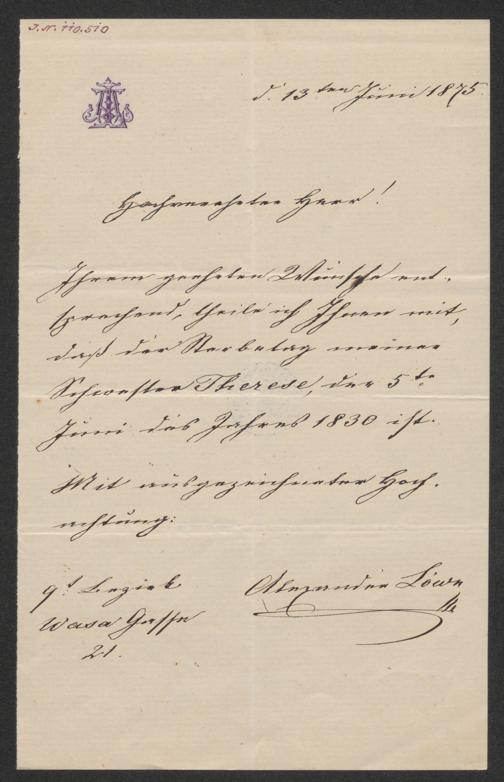 J.N. 110.510
d. 13ten Juni 1875.
Hochverehrter Herr!
Ihrem geehrten Wunsche ent-
sprechend, theile ich Ihnen mit,
daß der Sterbetag meiner
Schwester Therese, der 5te
Juni des Jahres 1830 ist.
Mit ausgezeichneter Hoch-
achtung:
9t Bezirk
Wasa Gasse
21.
Alexander Löwe